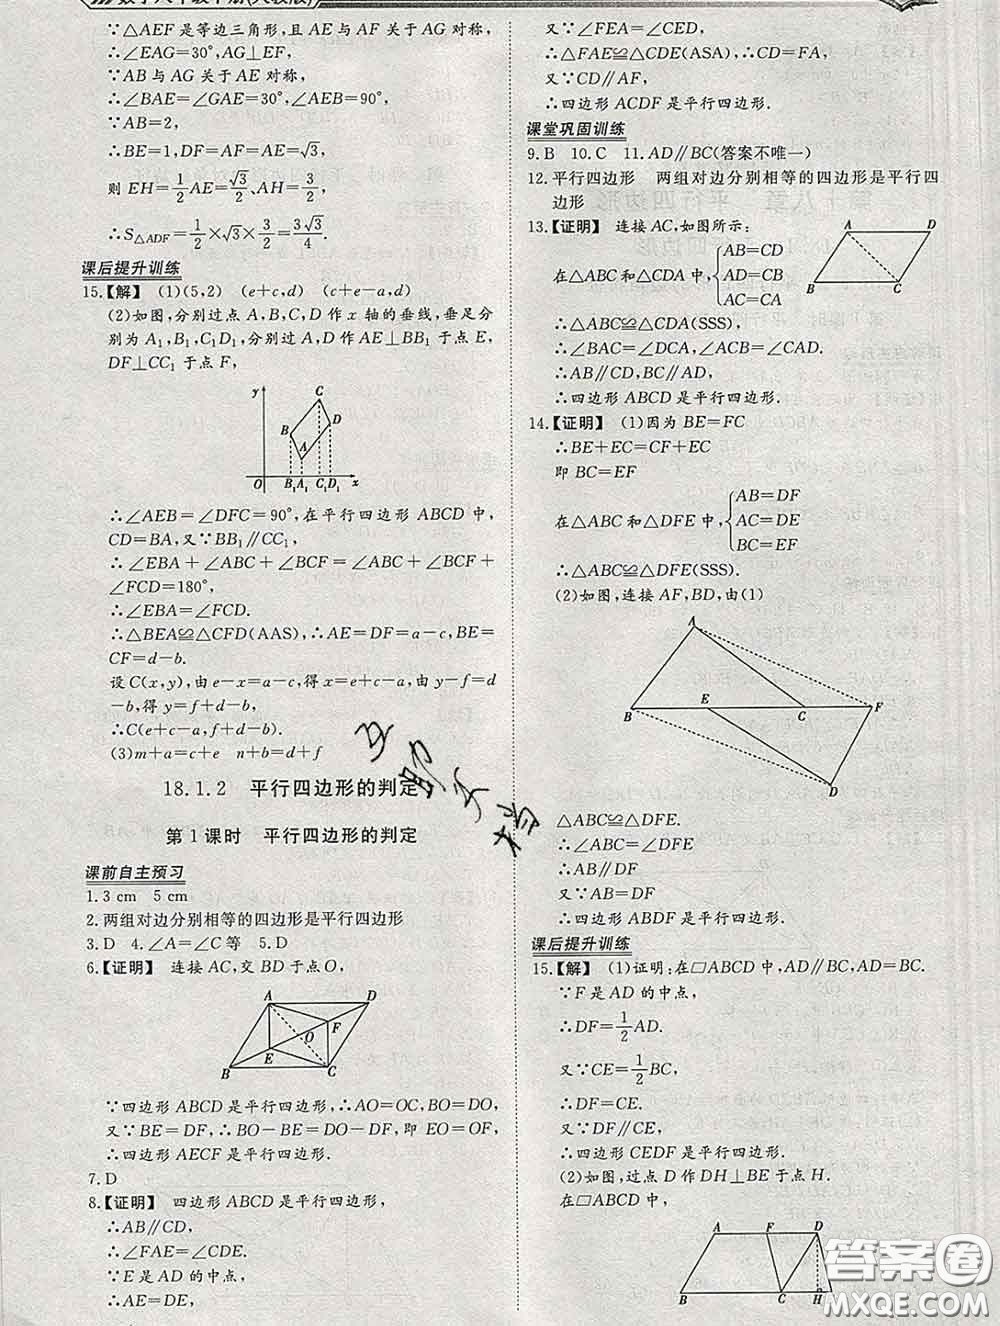 ∵△AEF是等边三角形,且AE与AF关于AG对称,
∴∠EAG=30°,AG⊥EF,
∵AB与AG关于AE对称,
∴∠BAE=∠GAE=30°,∠AEB=90°,
∵AB=2,
∴BE=1,DF=AF=AE=√3,
则EH=1/2AE=√3/2,AH=3/2,
∴S△ADF=1/2×√3×3/2=3√3/4.
课后提升训练
15.【解】 (1)(5,2) (e+c,d) (c+e-a,d)
(2)如图,分别过点A,B,C,D作x轴的垂线,垂足分
别为A₁,B₁,C₁D₁,分别过A,D作AE⊥BB₁于点E,
DF⊥CC₁于点F,
y
C
B
D
A
O B₁A₁ C₁D₁ x
∴∠AEB=∠DFC=90°,在平行四边形ABCD中,
CD=BA,又∵BB₁∥CC₁,
∴∠EBA+∠ABC+∠BCF=∠ABC+∠BCF+
∠FCD=180°,
∴∠EBA=∠FCD.
∴△BEA≌△CFD(AAS),∴AE=DF=a-c,BE=
CF=d-b.
设C(x,y),由e-x=a-c,得x=e+c-a,由y-f=d
-b,得y=f+d-b,
∴C(e+c-a,f+d-b).
(3)m+a=c+e n+b=d+f
18.1.2 平行四边形的判定
第1课时 平行四边形的判定
课前自主预习
1.3 cm 5 cm
2.两组对边分别相等的四边形是平行四边形
3.D 4.∠A=∠C等 5.D
6.【证明】 连接AC,交BD于点O,
A D
F
O
E
B C
∵四边形ABCD是平行四边形,∴AO=OC,BO=DO,
又∵BE=DF,∴BO-BE=DO-DF,即EO=OF,
∴四边形AECF是平行四边形.
7.D
8.【证明】 四边形ABCD是平行四边形,
∴AB∥CD,
∴∠FAE=∠CDE.
∵E是AD的中点,
∴AE=DE,
又∵∠FEA=∠CED,
∴△FAE≌△CDE(ASA),∴CD=FA,
又∵CD∥AF,
∴四边形ACDF是平行四边形.
课堂巩固训练
9.B 10.C 11.AD∥BC(答案不唯一)
12.平行四边形 两组对边分别相等的四边形是平行四
边形
13.【证明】 连接AC,如图所示:
A D
B C
AB=CD
在△ABC和△CDA中, AD=CB
AC=CA
∴△ABC≌△CDA(SSS),
∴∠BAC=∠DCA,∠ACB=∠CAD.
∴AB∥CD,BC∥AD,
∴四边形ABCD是平行四边形.
14.【证明】 (1)因为BE=FC
∴BE+EC=CF+EC
即BC=EF
AB=DF
在△ABC和△DFE中, AC=DE
BC=EF
∴△ABC≌△DFE(SSS).
(2)如图,连接AF,BD,由(1)
A
B E C F
D
△ABC≌△DFE.
∴∠ABC=∠DFE
∴AB∥DF
又∵AB=DF
∴四边形ABDF是平行四边形.
课后提升训练
15.【解】 (1)证明:在□ABCD中,AD∥BC,AD=BC.
∵F是AD的中点,
∴DF=1/2AD.
又∵CE=1/2BC,
∴DF=CE.
又∵DF∥CE,
∴四边形CEDF是平行四边形.
(2)如图,过点D作DH⊥BE于点H.
在□ABCD中,
A F D
B C H
互助文档
答案圈
MXQE.COM